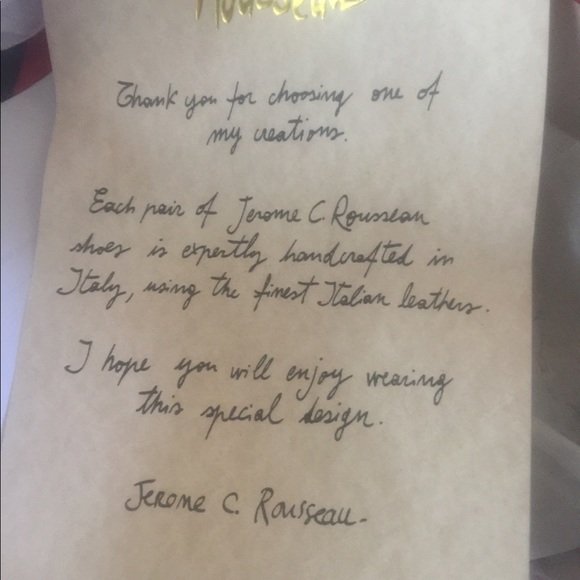 Rousseau
Thank you for choosing one of
my creations.
Each pair of Jerome C. Rousseau
shoes is expertly handcrafted in
Italy, using the finest Italian leathers.
I hope you will enjoy wearing
this special design.
Jerome C. Rousseau.